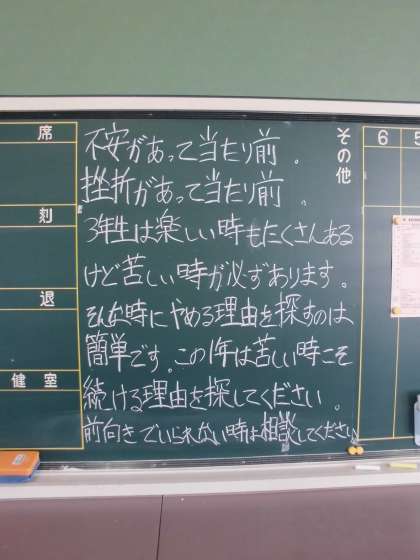 不安があって当たり前。
挫折があって当たり前。
3年生は楽しい時もたくさんある
けど苦しい時が必ずあります。
そんな時にやめる理由を探すのは
簡単です。この1年は苦しい時こそ
続ける理由を探してください。
前向きでいられない時は相談してください
席
刻
退
健室
その他
6
5